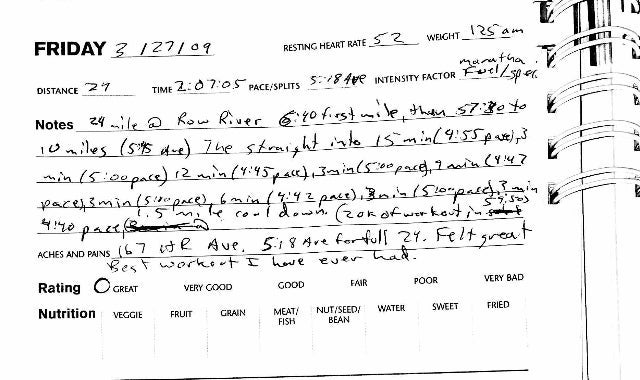 FRIDAY 3/27/09 RESTING HEART RATE 52 WEIGHT 125 am
DISTANCE 24 TIME 2:07:05 PACE/SPLITS 5:18 Ave INTENSITY FACTOR maratha. Fuel/spec.
Notes 24 mile @ Row River 6:40 first mile, then 57:30 to
10 miles (5:45 Ave) The straight into 15 min (4:55 pace), 3
min (5:00 pace) 12 min (4:45 pace), 3 min (5:00 pace), 9 min (4:47
pace), 3 min (5:00 pace), 6 min (4:42 pace), 3 min (5:00 pace), 3 min
4:40 pace, 1.5 mile cool down. (20K of workout in 59:50)
ACHES AND PAINS 167 HR Ave. 5:18 Ave for full 24. Felt great
Best workout I have ever had.
Rating GREAT VERY GOOD GOOD FAIR POOR VERY BAD
Nutrition VEGGIE FRUIT GRAIN MEAT/FISH NUT/SEED/BEAN WATER SWEET FRIED